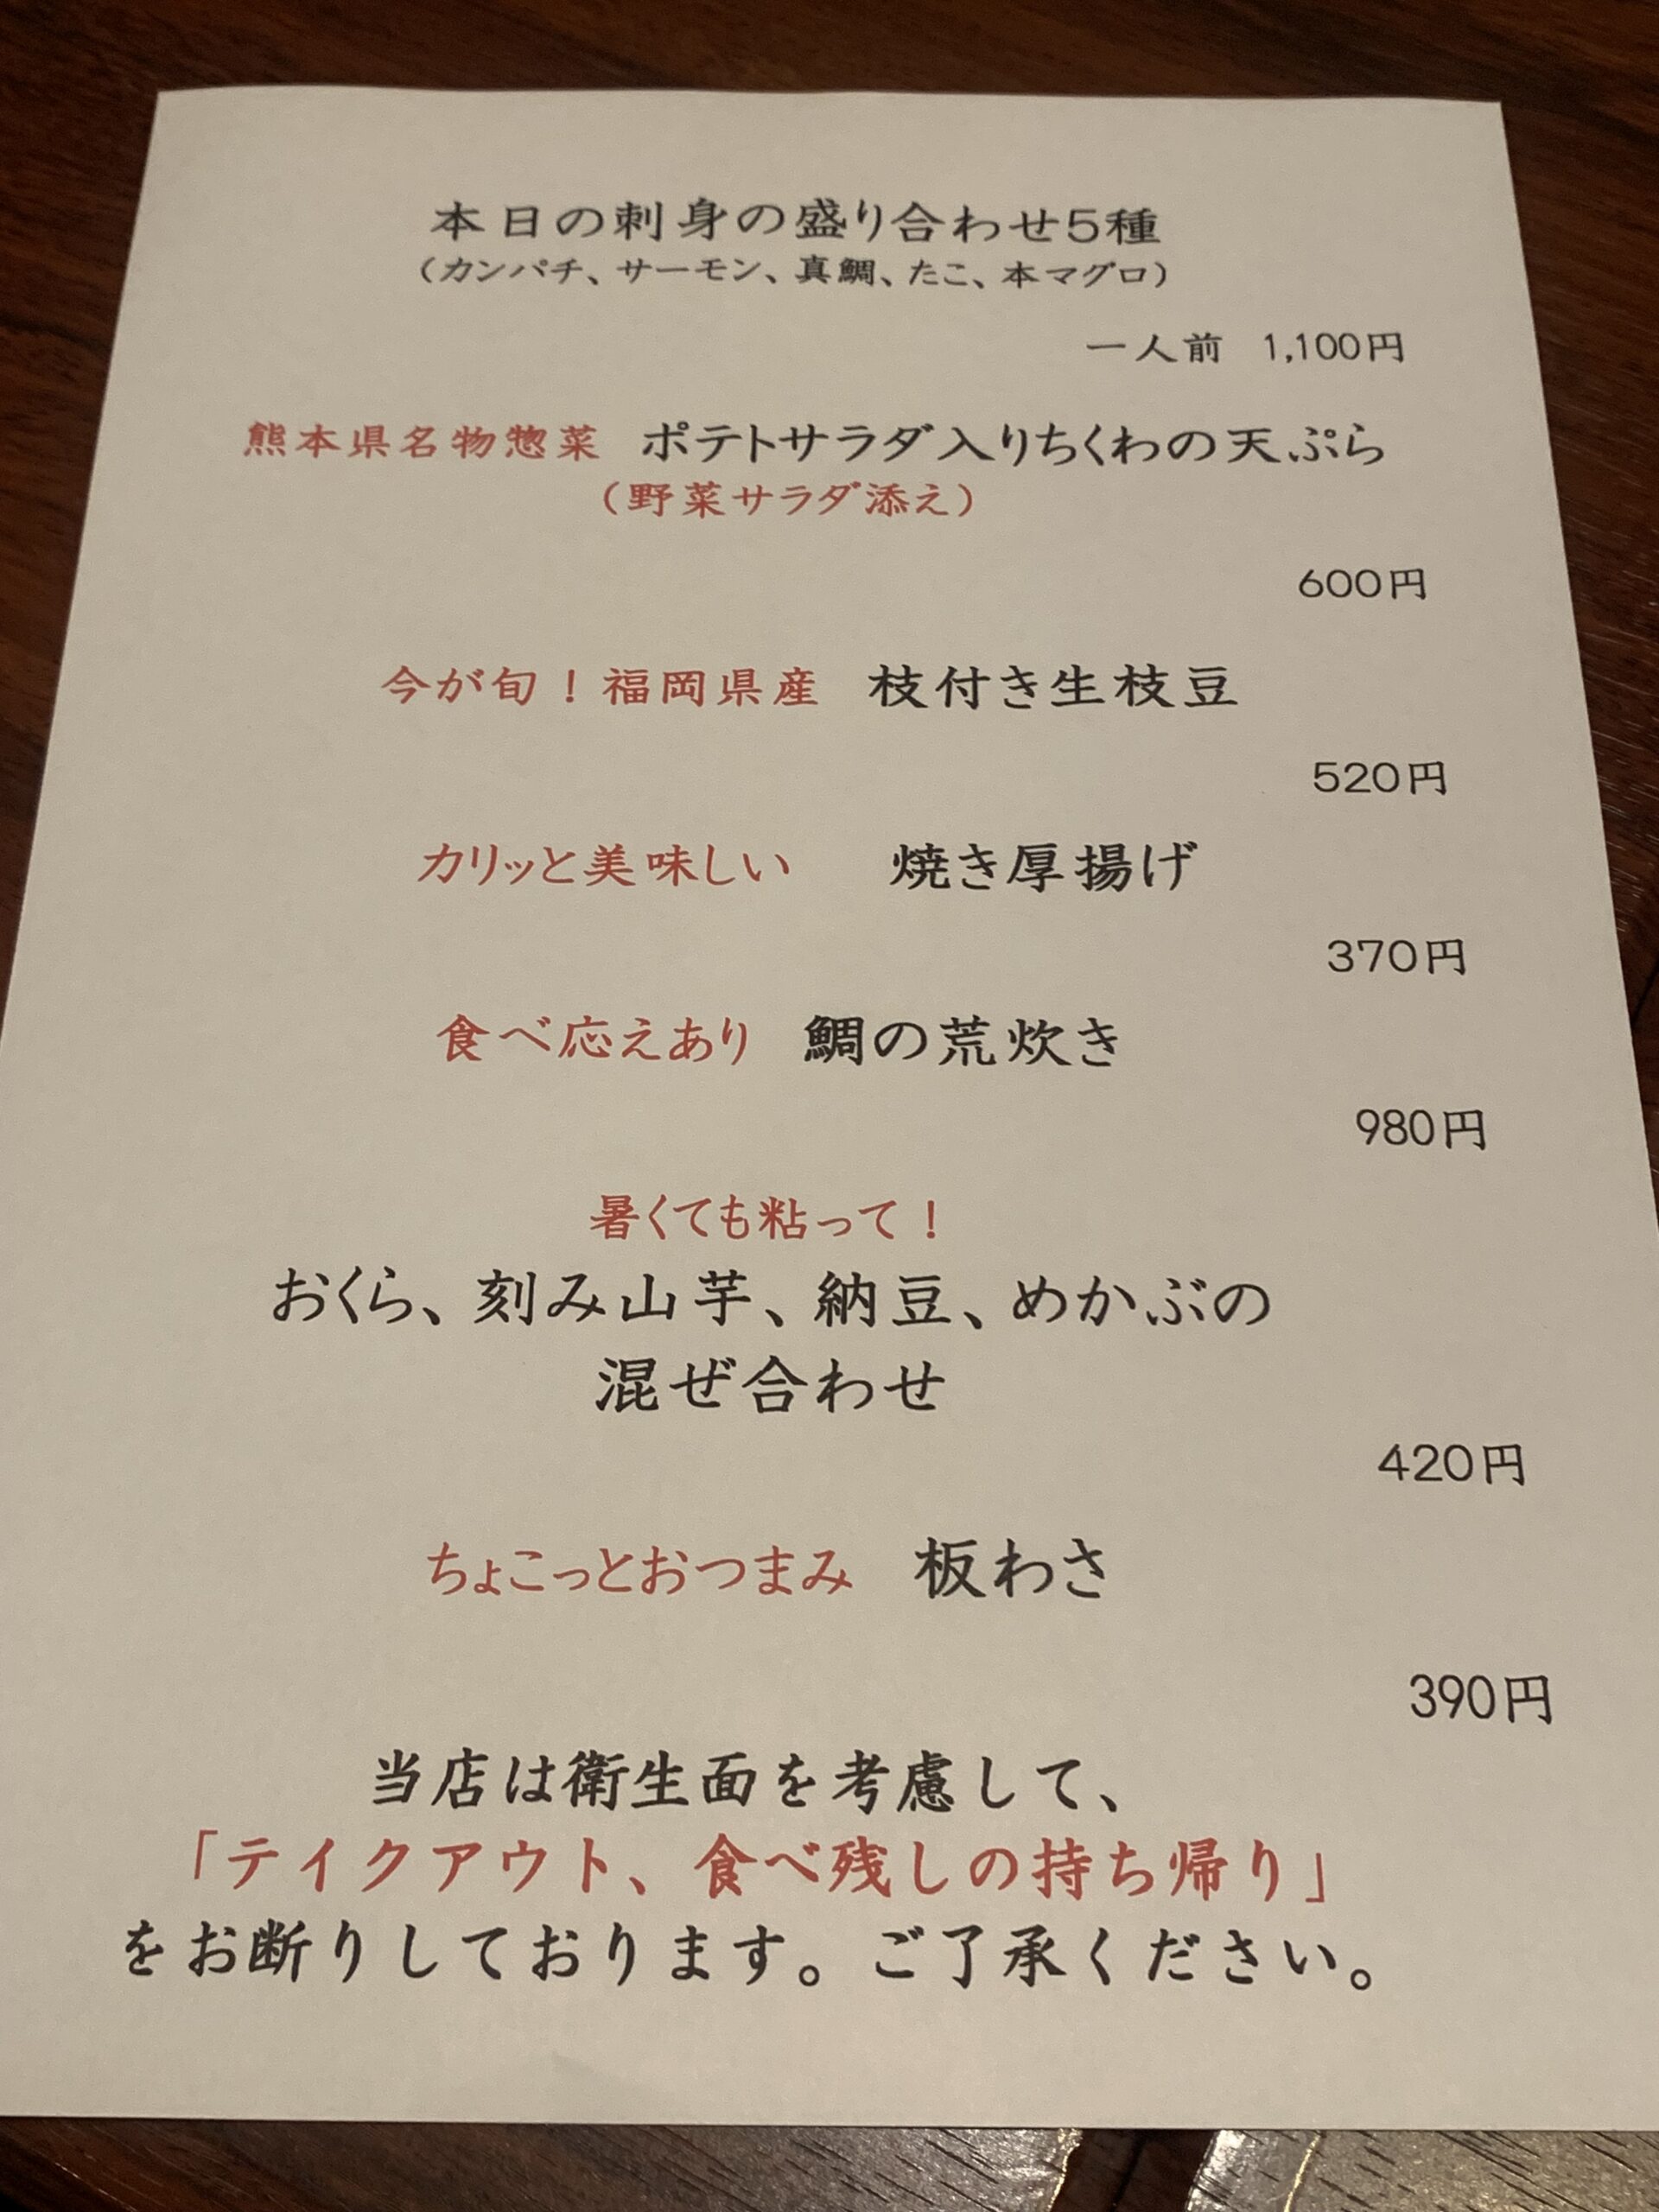 本日の刺身の盛り合わせ5種
（カンパチ、サーモン、真鯛、たこ、本マグロ）
一人前 1,100円
熊本県名物惣菜 ポテトサラダ入りちくわの天ぷら
（野菜サラダ添え）
600円
今が旬！福岡県産 枝付き生枝豆
520円
カリッと美味しい 焼き厚揚げ
370円
食べ応えあり 鯛の荒炊き
980円
暑くても粘って！
おくら、刻み山芋、納豆、めかぶの
混ぜ合わせ
420円
ちょこっとおつまみ 板わさ
390円
当店は衛生面を考慮して、
「テイクアウト、食べ残しの持ち帰り」
をお断りしております。ご了承ください。